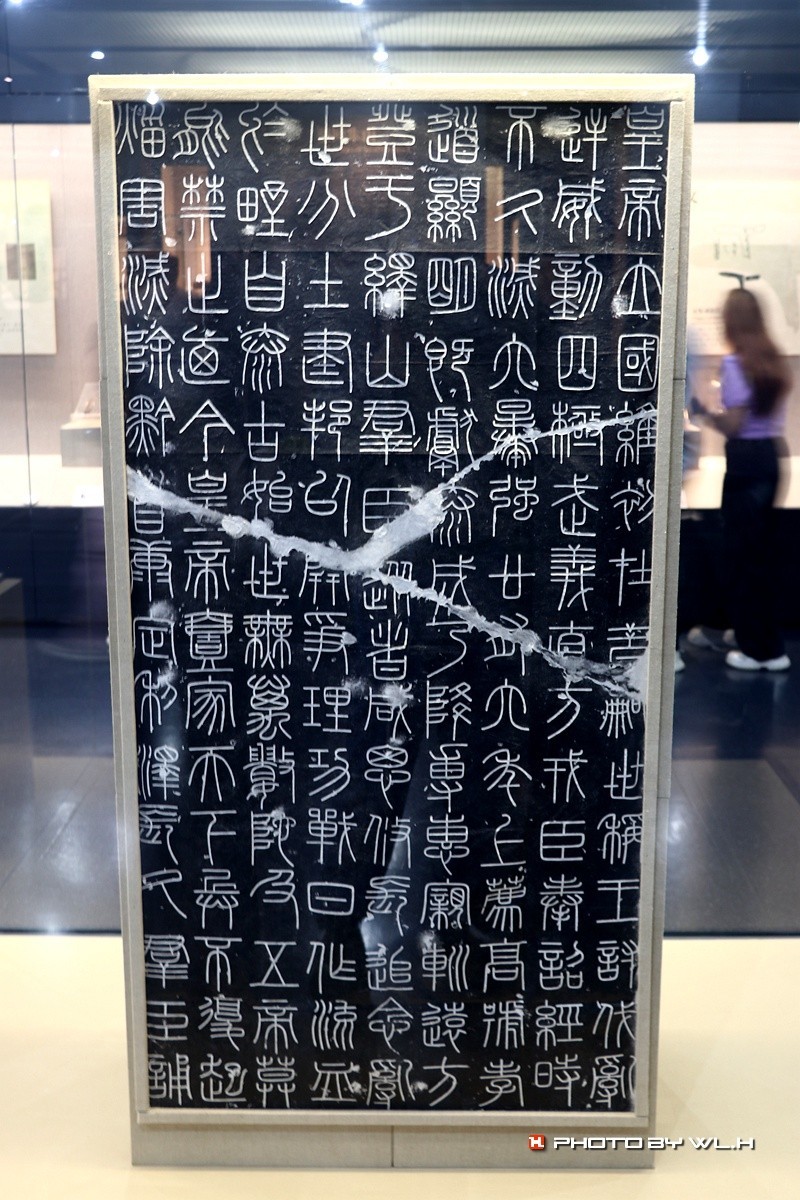 皇帝立國維初在昔嗣世稱王討伐亂
逆威動四極武義直方戎臣奉詔經時
不久滅六暴強廿有六年上薦高號孝
道顯明既獻泰成乃降尃惠親䡅遠方
登于繹山羣臣從者咸思攸長追念亂
世分土建邦以開爭理功戰日作流血
於野自泰古始世無萬數陀及五帝莫
能禁止迺今皇帝壹家天下兵不復起
災害滅除黔首康定利澤長久羣臣誦
PHOTO BY WL.H